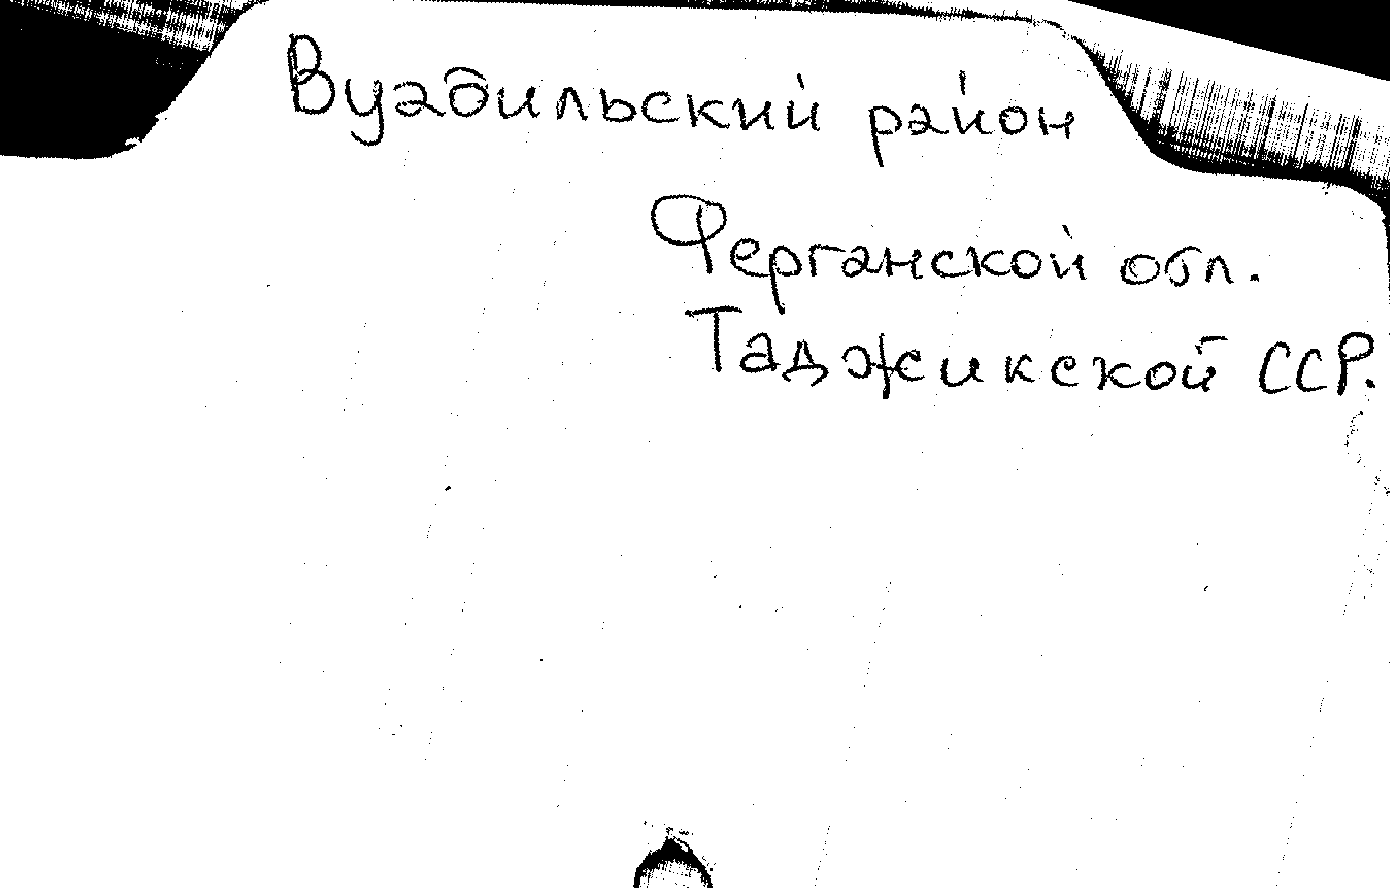 Вуадильский район
Ферганской обл.
Таджикской ССР.